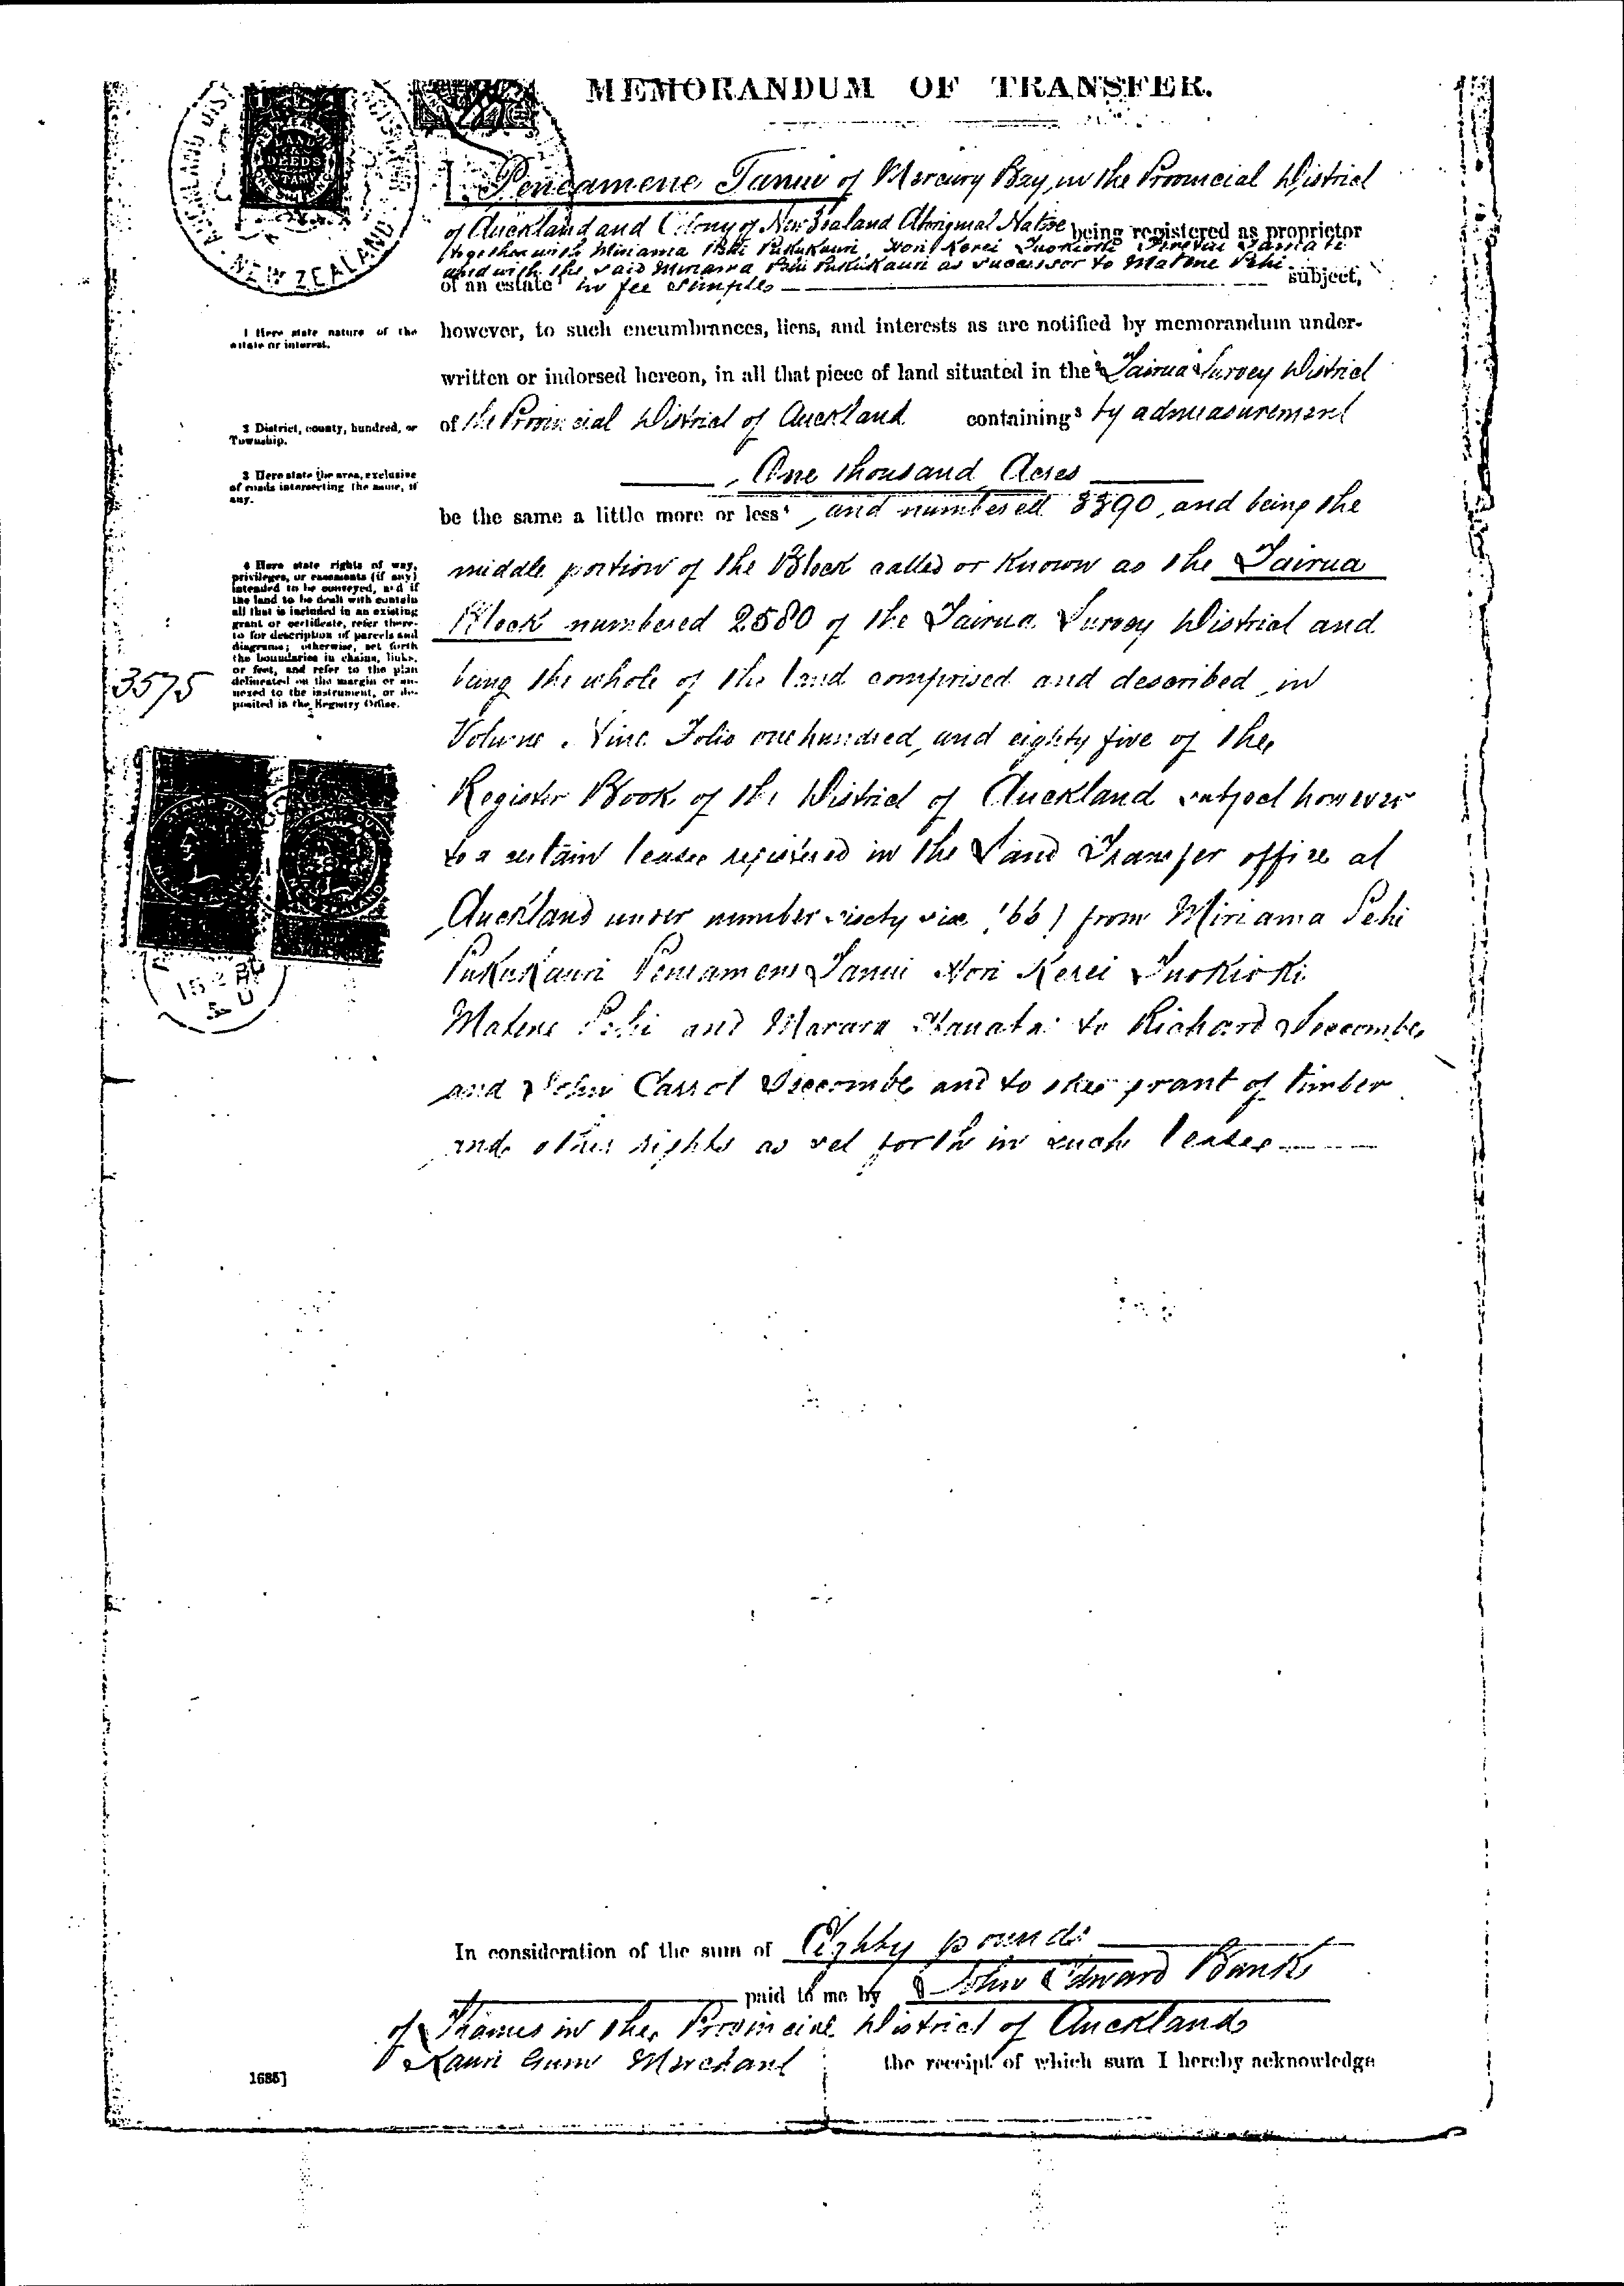 MEMORANDUM OF TRANSFER.
NEW ZEALAND
LAND
DEEDS
I Peneamene Tanui of Mercury Bay, in the Provincial District
of Auckland and Colony of New Zealand Aboriginal Native being registered as proprietor
together with Miriama Pehi Pukukauri, Hori Kerei Tuokioki
and with the said Miriama Pehi Pukukauri as successor to Matene Pehi
of an estate¹ in fee simple subject,
1 Here state nature of the
estate or interest.
however, to such encumbrances, liens, and interests as are notified by memorandum under-
written or indorsed hereon, in all that piece of land situated in the ² Tairua Survey District
2 District, county, hundred, or
Township.
of the Provincial District of Auckland containing³ by admeasurement
3 Here state the area, exclusive
of roads intersecting the same, if
any.
One thousand Acres
be the same a little more or less⁴, and numbered 3390, and being the
4 Here state rights of way,
privileges, or easements (if any)
intended to be conveyed, and if
the land to be dealt with contain
all that is included in an existing
grant or certificate, refer there-
to for description of parcels and
diagrams; otherwise, set forth
the boundaries in chains, links,
or feet, and refer to the plan
delineated on the margin or an-
nexed to the instrument, or de-
posited in the Registry Office.
3575
middle portion of the Block called or known as the Tairua
Block numbered 2580 of the Tairua Survey District and
being the whole of the land comprised and described in
Volume Nine Folio one hundred and eighty five of the
Register Book of the District of Auckland subject however
to a certain lease registered in the Land Transfer office at
Auckland under number sixty six (66) from Miriama Pehi
Pukukauri Peneamene Tanui Hori Kerei Tuokioki
Matene Pehi and Marara Kanata to Richard Seccombe
and John Carrol Seccombe and to the grant of timber
and other rights as set forth in such lease
STAMP DUTY
In consideration of the sum of Eighty pounds
paid to me by John Edward Banks
of Thames in the Provincial District of Auckland
Kauri Gum Merchant the receipt of which sum I hereby acknowledge
1685]